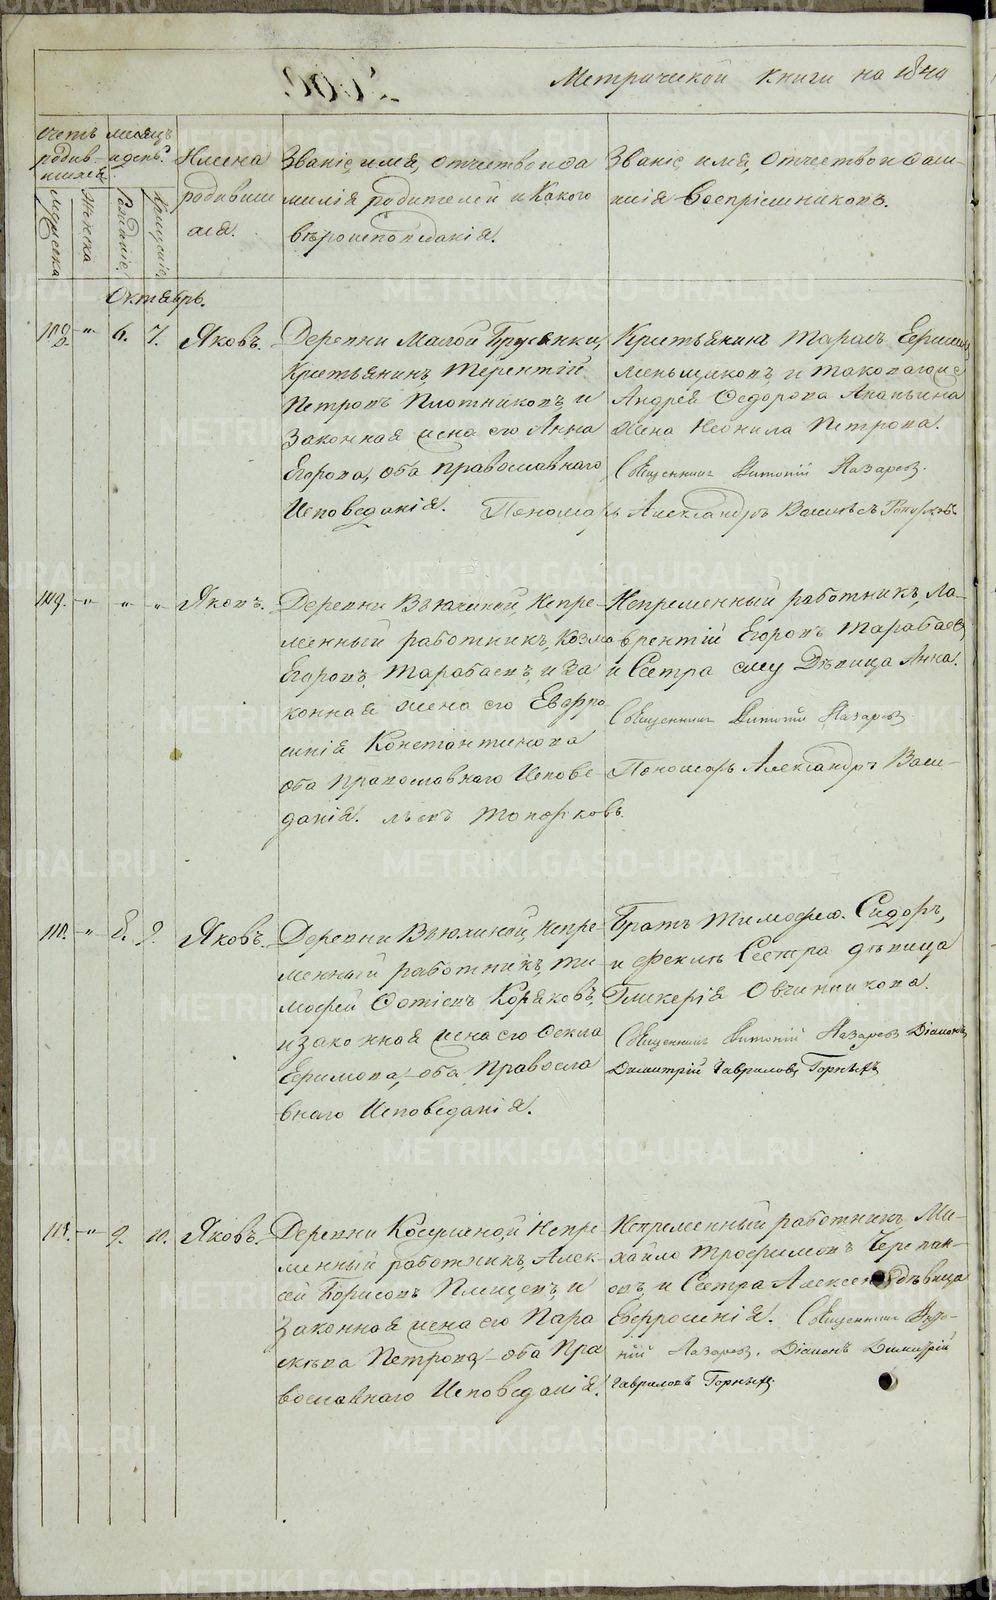 Метрической книги на 1840
Счетъ родив-шихся
месяцъ и день
Имена родивших ся.
Званіе, имя, отчество и фамилія родителей и какого вѣроисповѣданія.
Званіе, имя, отчество и фамилія воспріемниковъ.
Мужеска
Женска
Рожденіе
Крещеніе
Октябрь.
108. " 6. 7. Яковъ.
Деревни Малой Брусянки,
Крестьянинъ Терентій
Петровъ Плотниковъ и
Законная жена его Анна
Егорова, оба православнаго
Исповеданія.
Крестьянинъ Тарасъ Ефимовъ
Меньщиковъ, и таковагоже
Андрея Федорова Ананьина
Жена Неонила Петрова.
Священникъ Антоній Лазаревъ.
Пономарь Александръ Васильевъ Топорковъ.
109. " " " Яковъ.
Деревни Вьюхиной, Непре-
менный работникъ, Козма
Егоровъ Тарабаевъ, и За
конная жена его Евфро
синія Константинова
оба Православнаго Испове-
данія.
Непременный работникъ, Ла-
врентій Егоровъ Тарабаевъ,
и Сестра ему Дѣвица Анна.
Священникъ Антоній Лазаревъ
Пономарь Александръ Васи-
льевъ Топорковъ.
110. " 8. 9. Яковъ.
Деревни Вьюхиной, Непре-
менный работникъ, Ти-
мофей Фотіевъ Коряковъ,
и законная жена его Фекла
Ефимова, оба Правосла
внаго Исповеданія.
Братъ Тимофею Сидоръ,
и Феклѣ Сестра дѣвица
Гликерія Овчинникова.
Священникъ Антоній Лазаревъ Діаконъ
Димитрій Гавриловъ Горныхъ
111. " 9. 10. Яковъ.
Деревни Косулиной, Непре
менный работникъ, Алек-
сей Борисовъ Плещевъ, и
Законная жена его Пара
скева Петрова оба Пра
вославнаго Исповеданія.
Непременный работникъ, Ми-
хайло Трофимовъ Черепан-
овъ, и Сестра Алексею дѣвица
Евфросинія. Священникъ Анто-
ній Лазаревъ. Діаконъ Димитрій
Гавриловъ Горныхъ
METRIKI.GASO-URAL.RU